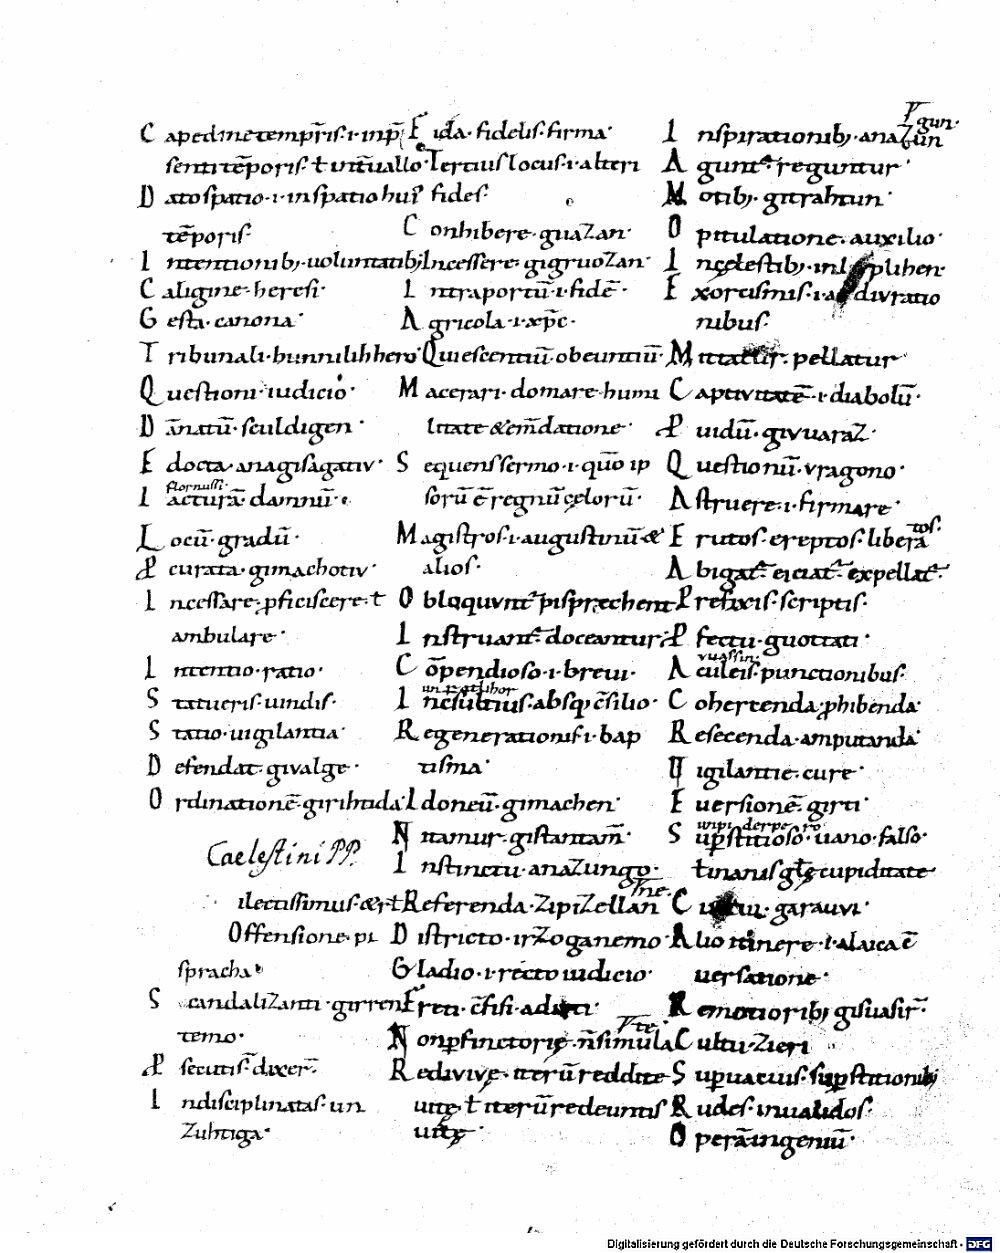 C apedine temp̄ris· i· inp̄
senti tēporis· ł int̄uallo·
D ato spatio· i· inspatio hui'
tēporis·
I ntentionib; uoluntatib;
C aligine· heresi·
G esta· canona·
T ribunali· hunnilihhero
Q uestioni· iudicio·
D ānatū· sculdigen·
E docta· anagisagatiu·
flornussi·
I acturā· damnū·
L ocū· gradū·
P curata· gimachotiu·
I ncessare· pficiscere· ł
ambulare·
I ntentio· ratio·
S tatueris· uindis·
S tatio· uigilantia·
D efendat· givalge·
O rdinationē· girihtida·
Caelestini PP.
ilectissimus·
Offensione· pi
spracha·
S candalizanti· girren
temo·
P secutis· dixer̄·
I ndisciplinatas· un
zuhtiga·
F ida· fidelis· firma·
Tertius locus· i· alteri
fides·
C onhibere· guazan·
Incessere· gigruozan·
I ntra portū· i· fidē·
A gricola· i· xp̄c·
Quiescentiū· obeuntiū·
M acerari· domare· humi
litate & em̄datione·
S equens sermo· i· quō ip
sorū ē regnū cęlorū·
M agistros· i· augustinū &
alios·
O bloquunt̄· pisprechent
I nstruant̄· doceantur·
C ōpendioso· i· brevi·
I nc̄sultius· absq; c̄silio·
R egenerationis· i· bap
tisma·
I doneū· gimachen·
N itamur· gistantam̄·
I nstinctu· anazungo·
ne·
Referenda· zipizellan
D istricto· irzoganemo·
G ladio· i· recto iudicio·
Freti· c̄fisi·
tę·
N on pfinctorię· n̄ simula
R edivivę· iterū reddite
uitę· ł iterū redeuntis
uitę·
gun·
I nspirationib; anazun
A gunt̄· reguntur·
M otib; gitrahtun·
O pitulatione· auxilio·
I ncęlestib; in
E xorcismis· i· adivratio
nibus·
M ittatur· pellatur
C aptivitatē· i· diabolū·
P uidū· givuaraz·
Q uestionū· vragono·
A struere· i· firmare·
tos·
E rutos· ereptos· libera
A bigat̄· eiciat̄· expellat̄·
P refixis· scriptis·
P fectu· guottati·
vuassin·
A culeis· punctionibus·
C ohercenda· phibenda·
R esecenda· amputanda·
U igilantie· cure·
E uersionē· girti·
S upstitioso· uano· falso·
cupiditate
C garauvi·
A lio itinere· i·
uersatione·
R emotiorib; gisuasir̄·
C ultu· zieri
S upuacuis· supstitionib;
R udes· inualidos·
O perā· ingeniū·